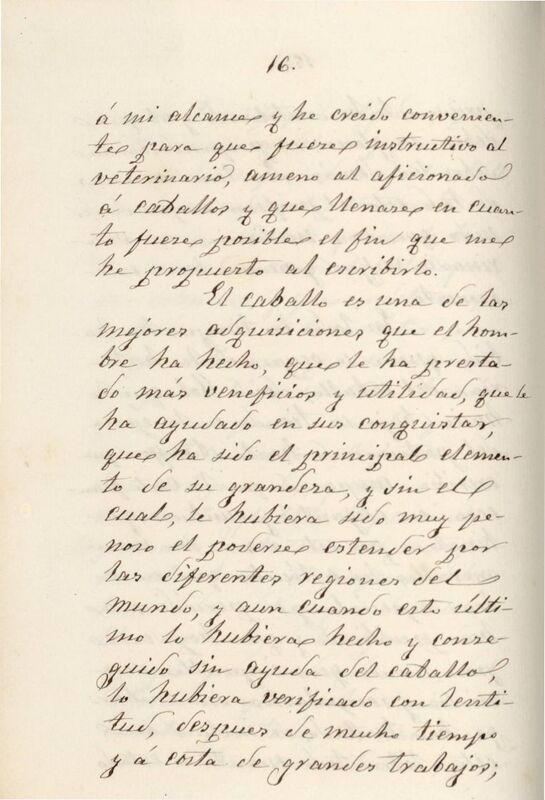 16.
á mi alcance y he creido convenien-
te para que fuere instructivo al
veterinario, ameno al aficionado
á caballos y que llenare en cuan-
to fuere posible el fin que me
he propuesto al escribirlo.
El caballo es una de las
mejores adquisiciones que el hom-
bre ha hecho, que le ha presta-
do más veneficios y utilidad, que le
ha ayudado en sus conquistas,
que ha sido el principal elemen-
to de su grandeza, y sin el
cual, le hubiera sido muy pe-
noso el poderse estender por
las diferentes regiones del
mundo, y aun cuando esto últi-
mo lo hubiera hecho y conse-
guido sin ayuda del caballo,
lo hubiera verificado con lenti-
tud, despues de mucho tiempo
y á costa de grandes trabajos;